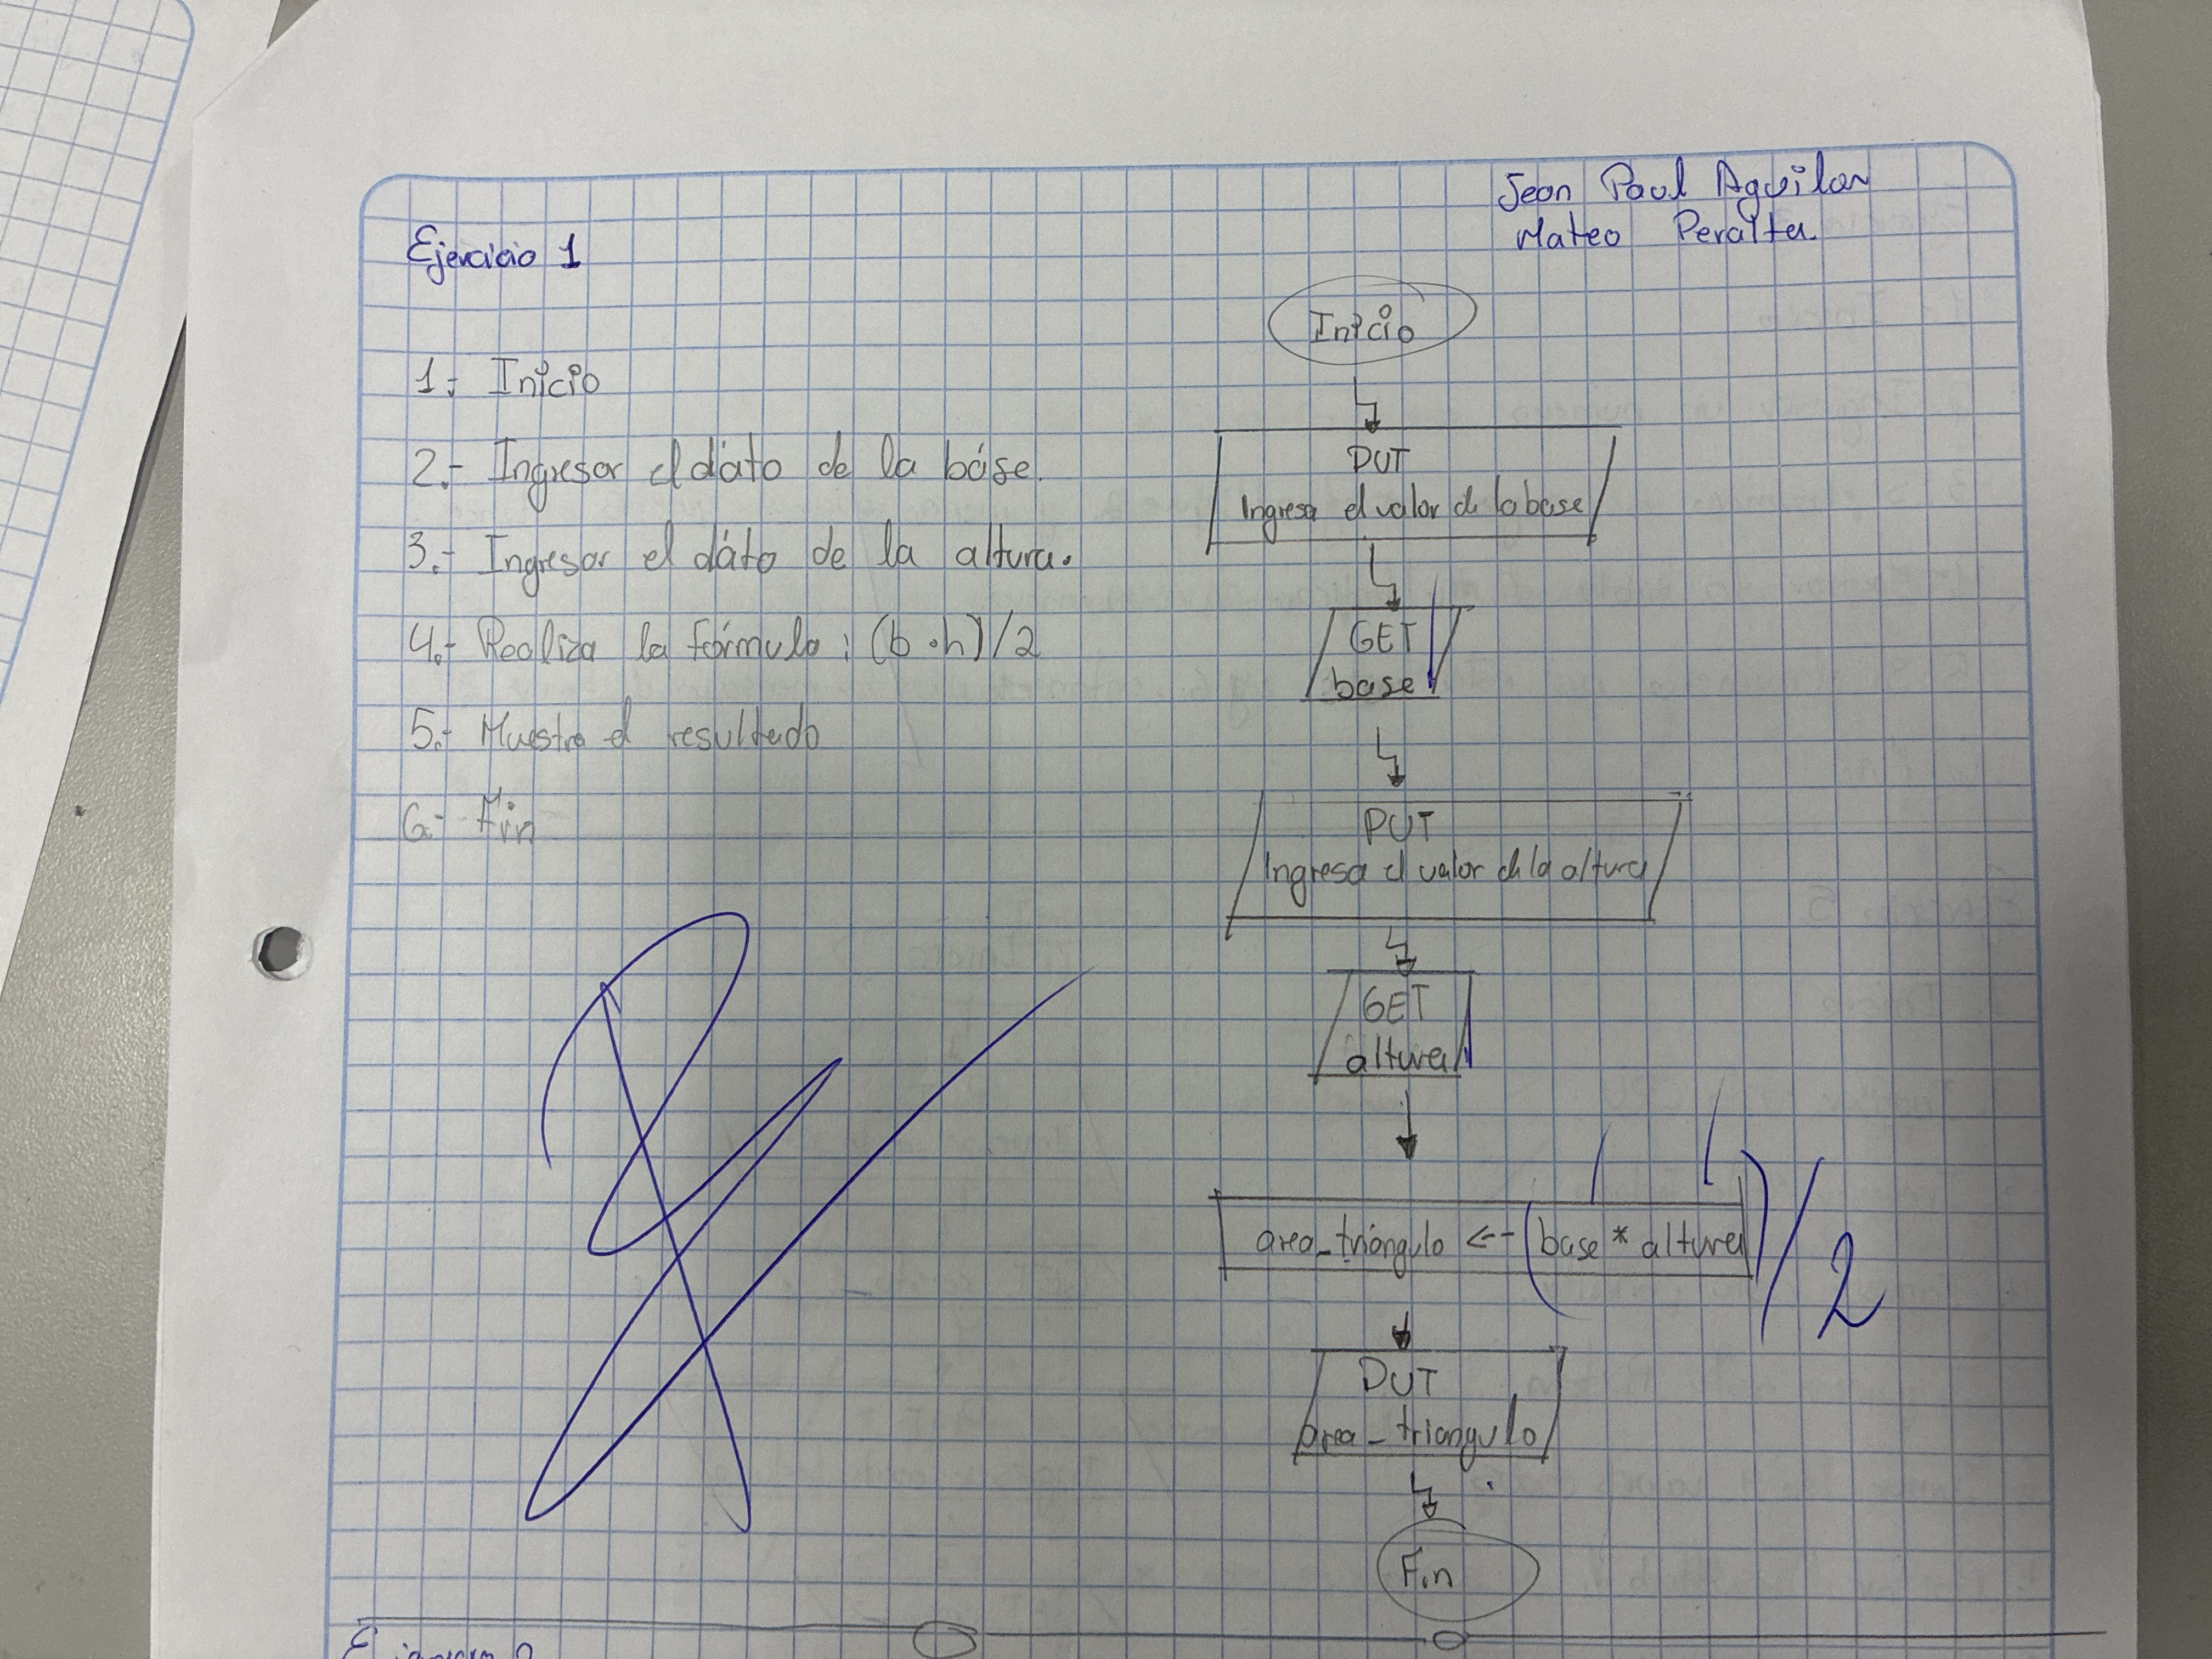 Jean Paul Aguilar
Mateo Peralta.
Ejercicio 1
1.- Inicio
2.- Ingresar el dáto de la báse.
3.- Ingresar el dáto de la altura.
4.- Realiza la fórmula: (b·h)/2
5.- Muestra el resultado
6.- Fin
Inicio
PUT
Ingresa el valor de la base
GET
base
PUT
Ingresa el valor de la altura
GET
altura
area_triángulo <- (base * altura)/2
PUT
area_triangulo
Fin